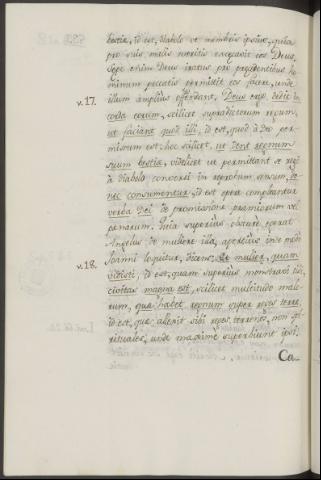 bestiæ, id est, diabolo et membris ipsius, quia
pro suis malis meritis excæcavit eos Deus.
Sæpe enim Deus iratus pro præcedentibus ho-
minum peccatis permittit eos facere, unde
illum amplius offendant. Deus enim dedit in
v. 17. corda eorum, scilicet supradictorum regum,
ut faciant quod illi, id est, quod a Deo per-
missum est: hoc scilicet, ut dent regnum
suum bestiæ, videlicet ut permittant se regi
a diabolo conversi in reprobum sensum, do-
nec consumentur, id est opere compleantur
verba Dei de promissione præmiorum vel
pœnarum. Quia superius obscure dixerat
Angelus de muliere ista, apertius inde
v. 18. Joanni loquitur, dicens: Et mulier, quam
vidisti, id est, quam superius monstravi tibi,
civitas magna est, scilicet multitudo malo-
rum, quæ habet regnum super reges terræ,
id est, quæ allexit sibi reges terrenos, non spi-
rituales, unde maxime superbiunt ipsi.
Ca-